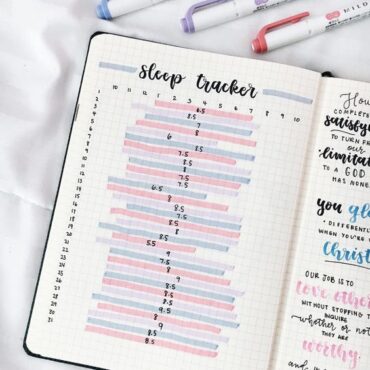 sleep tracker
10 11 12 1 2 3 4 5 6 7 8 9 10
1
2
3
4
5
6
7
8
9
10
11
12
13
14
15
16
17
18
19
20
21
22
23
24
25
26
27
28
29
30
31
6.5
8.5
7
8
6
8.5
7.5
8
7.5
7.5
6.5
8
8.5
7.5
8
8
8.5
5.5
9
9
8.5
8.5
9.5
8
9
8.5
8.5
How
COMPLETE
satisfy
TO TURN F
our
limitat
TO A GOD
HAS NONE
you gl
DIFFERENTL
WHEN YOU'RE
Christ
OUR JOB IS TO
love other
WITHOUT STOPPING T
INQUIRE
whether or not
THEY ARE
worthy
MILD